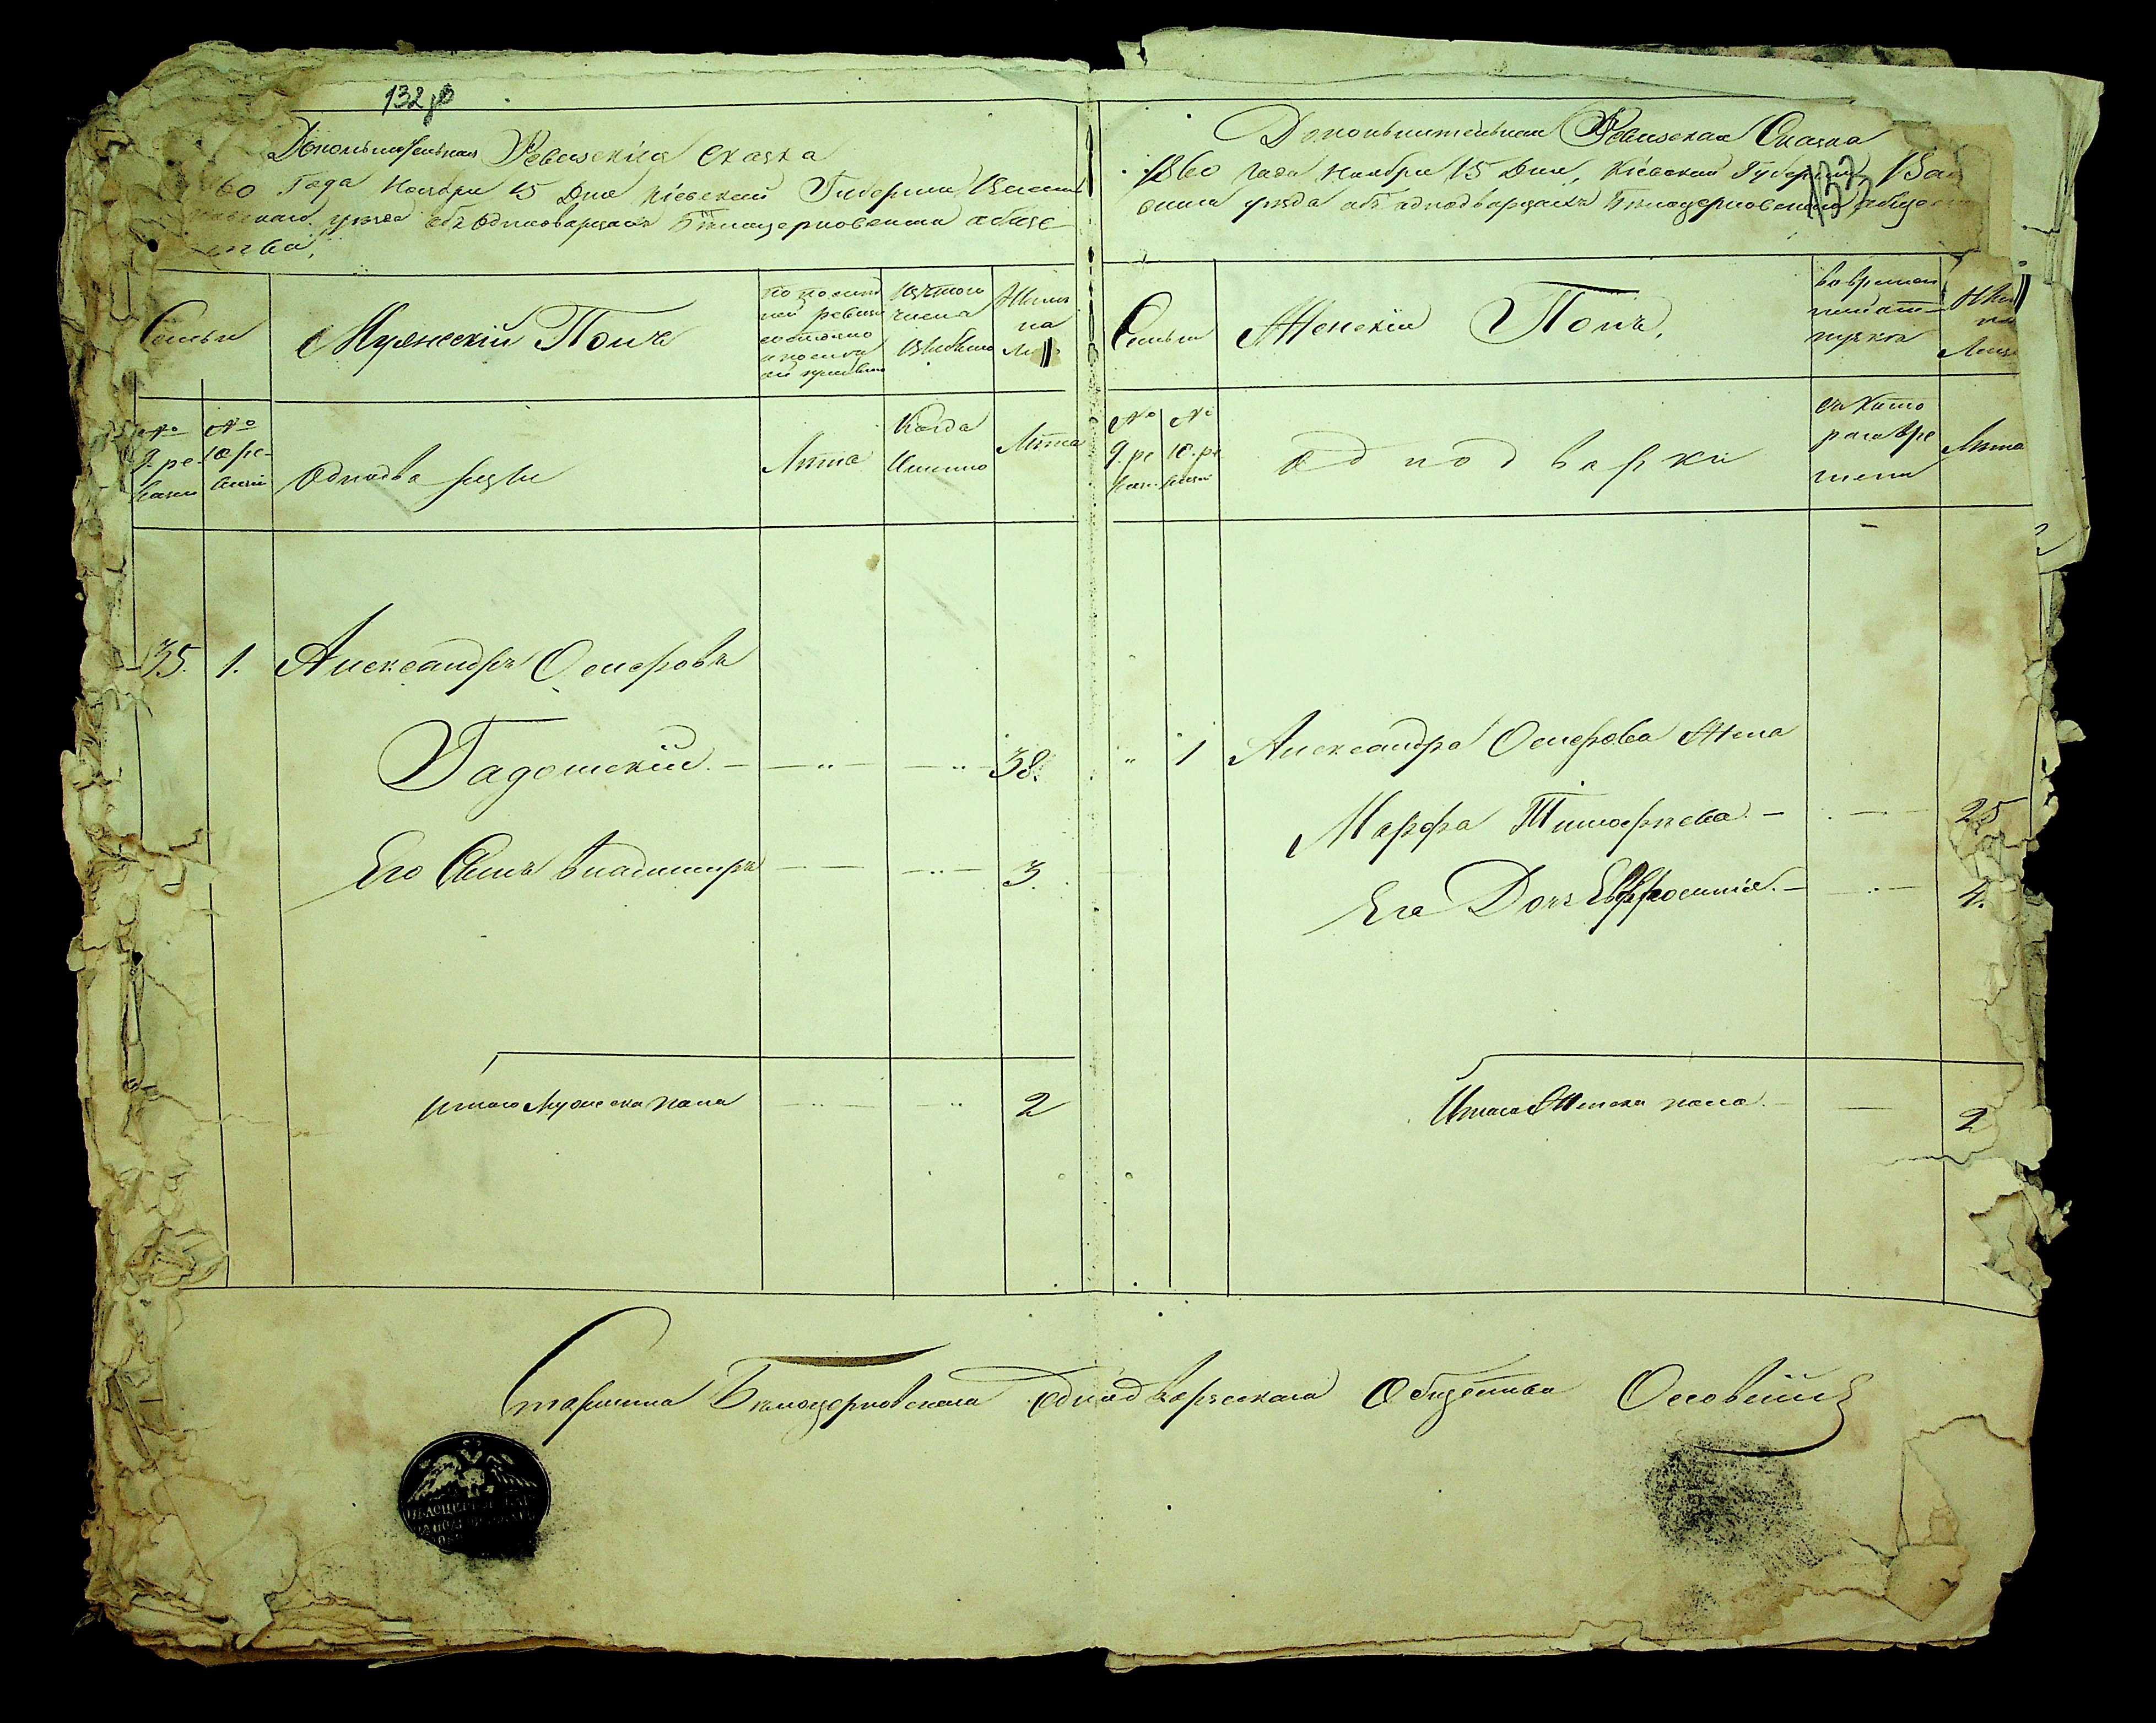 132 об
Дополнительная Ревизская Сказка
60 Года Ноября 15 Дня Кіевской Губерніи Васил
ковскаго уезда объ Однодворцахъ Бѣлоцерковскаго обще-
ства,
Семьи
Мужескій Полъ
по послед
ней ревизіи
состояло
и после
Изъ того
числа
выбыло
Ныне
на
Ли
№
9. ре-
визіи
№
10 ре-
визіи
Однодворцы
Лѣта
Когда
Именно
Лѣта
35. 1. Александръ Осиповъ
Гадомскій. 38.
Его Сынъ Владимиръ 3.
Итого Мужеска пола 2
133
Дополнительная Ревизская Сказка
1860 года Ноября 15 Дня, Кіевской Губерніи Ва
скаго уѣзда объ однодворцахъ Бѣлоцерковскаго общест
Семьи
Женскій Полъ,
во времен
ной от-
лучкѣ
Ны
на
Лица
№
9. ре
визіи
№
10. ре
визіи
Однодворки
съ кото
раго вре
мени
Лѣта
" 1 Александра Осипова Жена
Марфа Тимофѣева. 25
Его Дочь Евфросинія. 4.
Итого Женска пола. 2
Старшина Бѣлоцерковскаго Однодворческаго Общества